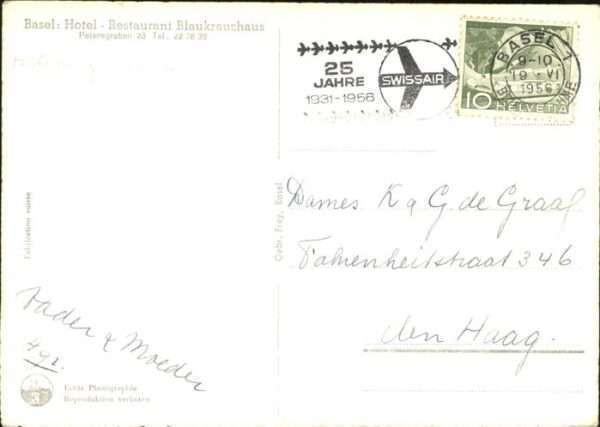 Basel: Hotel - Restaurant Blaukreuzhaus
Petersgraben 23 Tel. 22 78 39
25
JAHRE
1931-1956
SWISSAIR
BASEL 1
9-10
18. VI
1956
10 HELVETIA
Dames K & G. de Graaf.
Fahrenheitstraat 346
den Haag.
Gebr. Frey, Basel
Fabrication suisse
Vader & Moeder
Echte Photographie
Reproduktion verboten